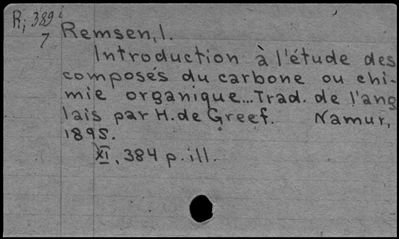 R; 389
7
Remsen, I.
Introduction à l'étude des
composés du carbone ou chi-
mie organique...Trad. de l'ang
lais par H. de Greef. Namur,
1895.
XI, 384 p. ill.